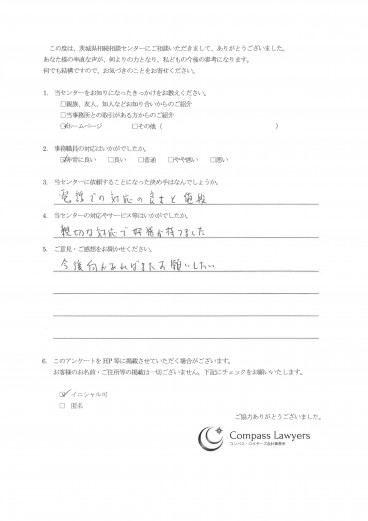 この度は、茨城県相続相談センターにご相談いただきまして、ありがとうございました。
あなた様の率直な声が、何よりの力となり、私どもの今後の参考になります。
何でも結構ですので、お気づきのことをお寄せください。
1. 当センターをお知りになったきっかけをお教えください。
□親族、友人、知人などお知り合いからのご紹介
□当事務所との取引がある方からのご紹介
☑ホームページ □その他（ ）
2. 事務職員の対応はいかがでしたか。
☑非常に良い □良い □普通 □やや悪い □悪い
3. 当センターに依頼することになった決め手はなんでしょうか。
電話での対応の良さと値段
4. 当センターの対応やサービス等はいかがでしたか。
親切な対応で好感が持てました
5. ご意見・ご感想をお聞かせください。
今後何かあればまたお願いしたい
6. このアンケートをHP等に掲載させていただく場合がございます。
お客様のお名前・ご住所等の掲載は一切ございません。下記にチェックをお願いいたします。
☑ イニシャル可
□ 匿名
ご協力ありがとうございました。
Compass Lawyers
コンパス・ロイヤーズ会計事務所